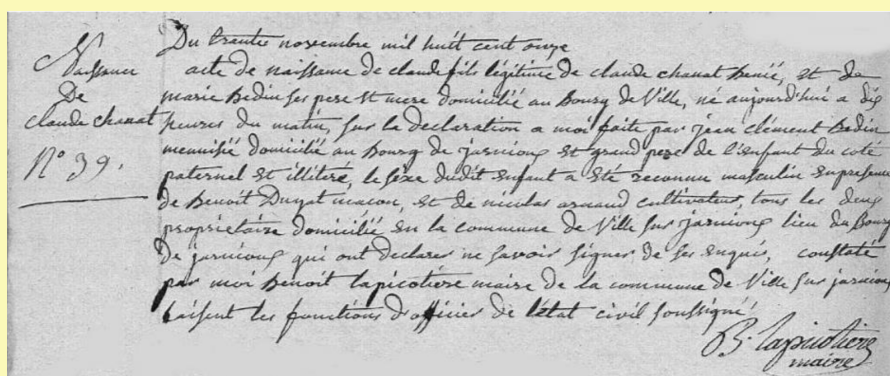 Naissance
De
claude chanat
N° 39.
Du trente novembre mil huit cent onze
acte de naissance de claude fils légitime de claude chanat Denié, et de
marie Bedin ses pere et mere domicilié au Bourg de Ville, né aujourd'hui a dix
heures du matin, sur la declaration a moi faite par jean clément Bedin
menuisié domicilié au Bourg de jarnioux et grand pere de l'enfant du coté
paternel et illitéré, le sexe dudit enfant a été reconnu masculin en presence
de Benoit Dugat macon, et de nicolas arnaud cultivateur, tous les deux
proprietaire domicilié en la commune de Ville sur jarnioux lieu du Bourg
de jarnioux qui ont declarer ne savoir signer de ses enquis, constaté
par moi Benoit lapicotiere maire de la commune de Ville sur jarnioux
faisent les fonctions d'officier de l'état civil soussigné
B. lapicotiere
maire